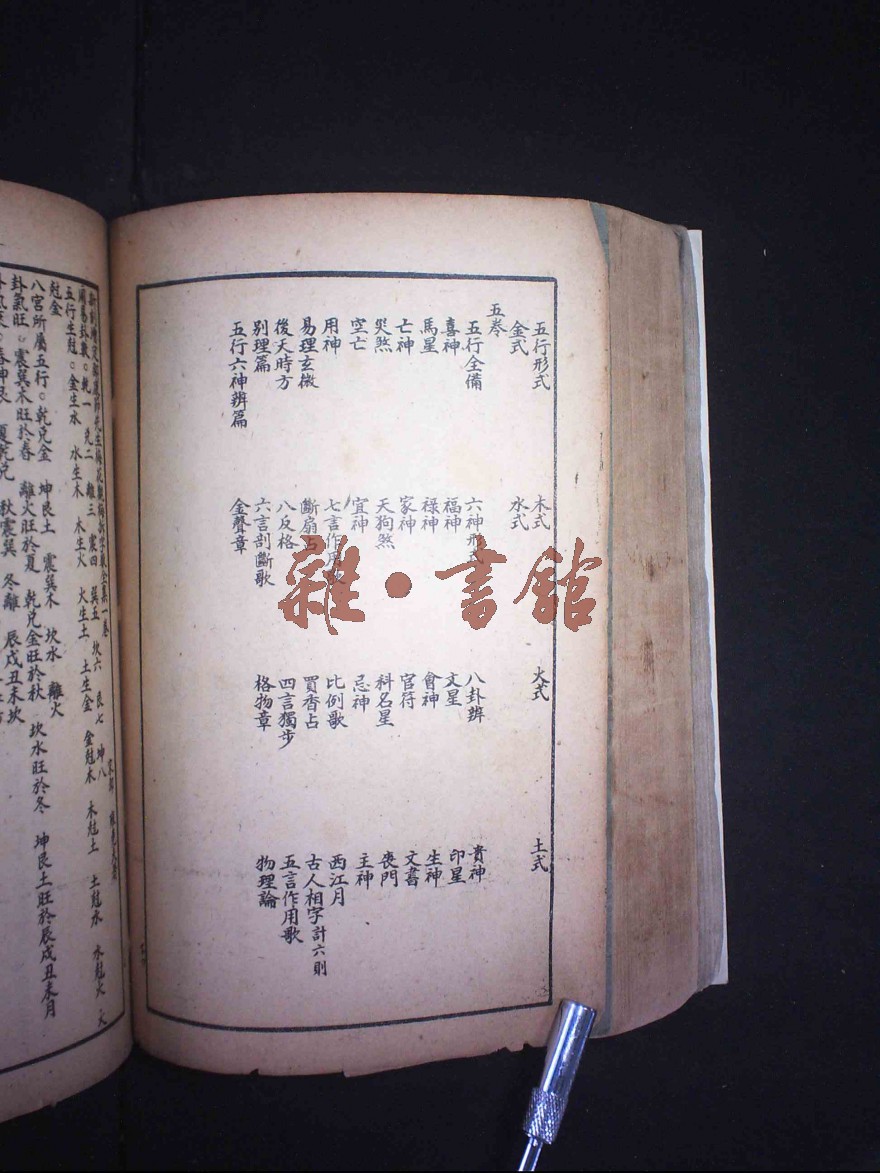 五行形式 木式 火式 土式
金式 水式
五卷
五行全備 六神形式 八卦辨 貴神
喜神 福神 文星 印星
馬星 祿神 會神 生神
亡神 家神 官符 文書
災煞 天狗煞 科名星 喪門
空亡 宜神 忌神 主神
用神 七言作用歌 比例歌 西江月
易理玄微 斷扇占 買香占 古人相字計六則
後天時方 八反格 四言獨步 五言作用歌
別理篇 六言剖斷歌 格物章 物理論
五行六神辨篇 金聲章
雜·書館
周易卦數○乾一 兌二 離三 震四 巽五 坎六 艮七 坤八
五行生尅○金生水 水生木 木生火 火生土 土生金 金尅木 木尅土 土尅水 水尅火 火
尅金
八宮所屬五行○乾兌金 坤艮土 震巽木 坎水 離火
卦氣旺○震巽木旺於春 離火旺於夏 乾兌金旺於秋 坎水旺於冬 坤艮土旺於辰戌丑未月
夏乾兌 秋震巽 冬離 辰戌丑未坎